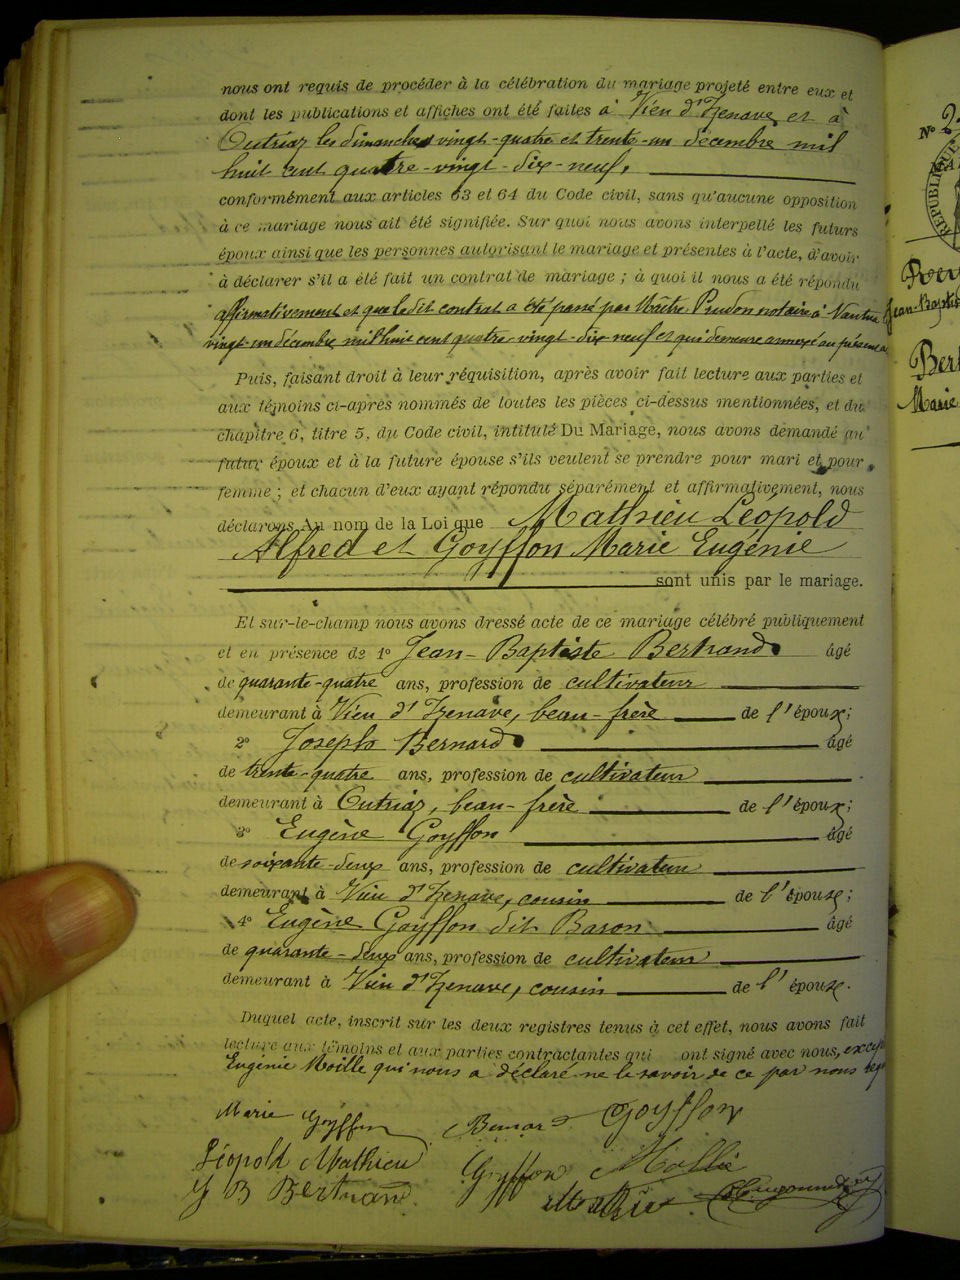 nous ont requis de procéder à la célébration du mariage projeté entre eux et
dont les publications et affiches ont été faites à Vieu d'Izenave et à
Outriaz les dimanches vingt-quatre et trente-un décembre mil
huit cent quatre-vingt-dix-neuf,
conformément aux articles 63 et 64 du Code civil, sans qu'aucune opposition
à ce mariage nous ait été signifiée. Sur quoi nous avons interpellé les futurs
époux ainsi que les personnes autorisant le mariage et présentes à l'acte, d'avoir
à déclarer s'il a été fait un contrat de mariage ; à quoi il nous a été répondu
affirmativement et que le dit contrat a été passé par Maître Prudon notaire à Nantua
vingt-un décembre mil huit cent quatre-vingt-dix-neuf et qui demeure annexé au présent
Puis, faisant droit à leur réquisition, après avoir fait lecture aux parties et
aux témoins ci-après nommés de toutes les pièces ci-dessus mentionnées, et du
chapitre 6, titre 5, du Code civil, intitulé Du Mariage, nous avons demandé au
futur époux et à la future épouse s'ils veulent se prendre pour mari et pour
femme ; et chacun d'eux ayant répondu séparément et affirmativement, nous
déclarons Au nom de la Loi que Mathieu Léopold
Alfred et Goyffon Marie Eugénie
sont unis par le mariage.
Et sur-le-champ nous avons dressé acte de ce mariage célébré publiquement
et en présence de 1° Jean-Baptiste Bertrand âgé
de quarante-quatre ans, profession de cultivateur
demeurant à Vieu d'Izenave, beau-frère de l'époux;
2° Joseph Bernard âgé
de trente-quatre ans, profession de cultivateur
demeurant à Outriaz, beau-frère de l'époux;
3° Eugène Goyffon âgé
de soixante-deux ans, profession de cultivateur
demeurant à Vieu d'Izenave, cousin de l'épouse;
4° Eugène Goyffon dit Baron âgé
de quarante-deux ans, profession de cultivateur
demeurant à Vieu d'Izenave, cousin de l'épouse.
Duquel acte, inscrit sur les deux registres tenus à cet effet, nous avons fait
lecture aux témoins et aux parties contractantes qui ont signé avec nous,
Eugénie Moille qui nous a déclaré ne le savoir de ce par nous
Marie Goyffon Bernard Goyffon
Léopold Mathieu Goyffon
J B Bertrand
N° 2
Jean-Baptiste
Marie